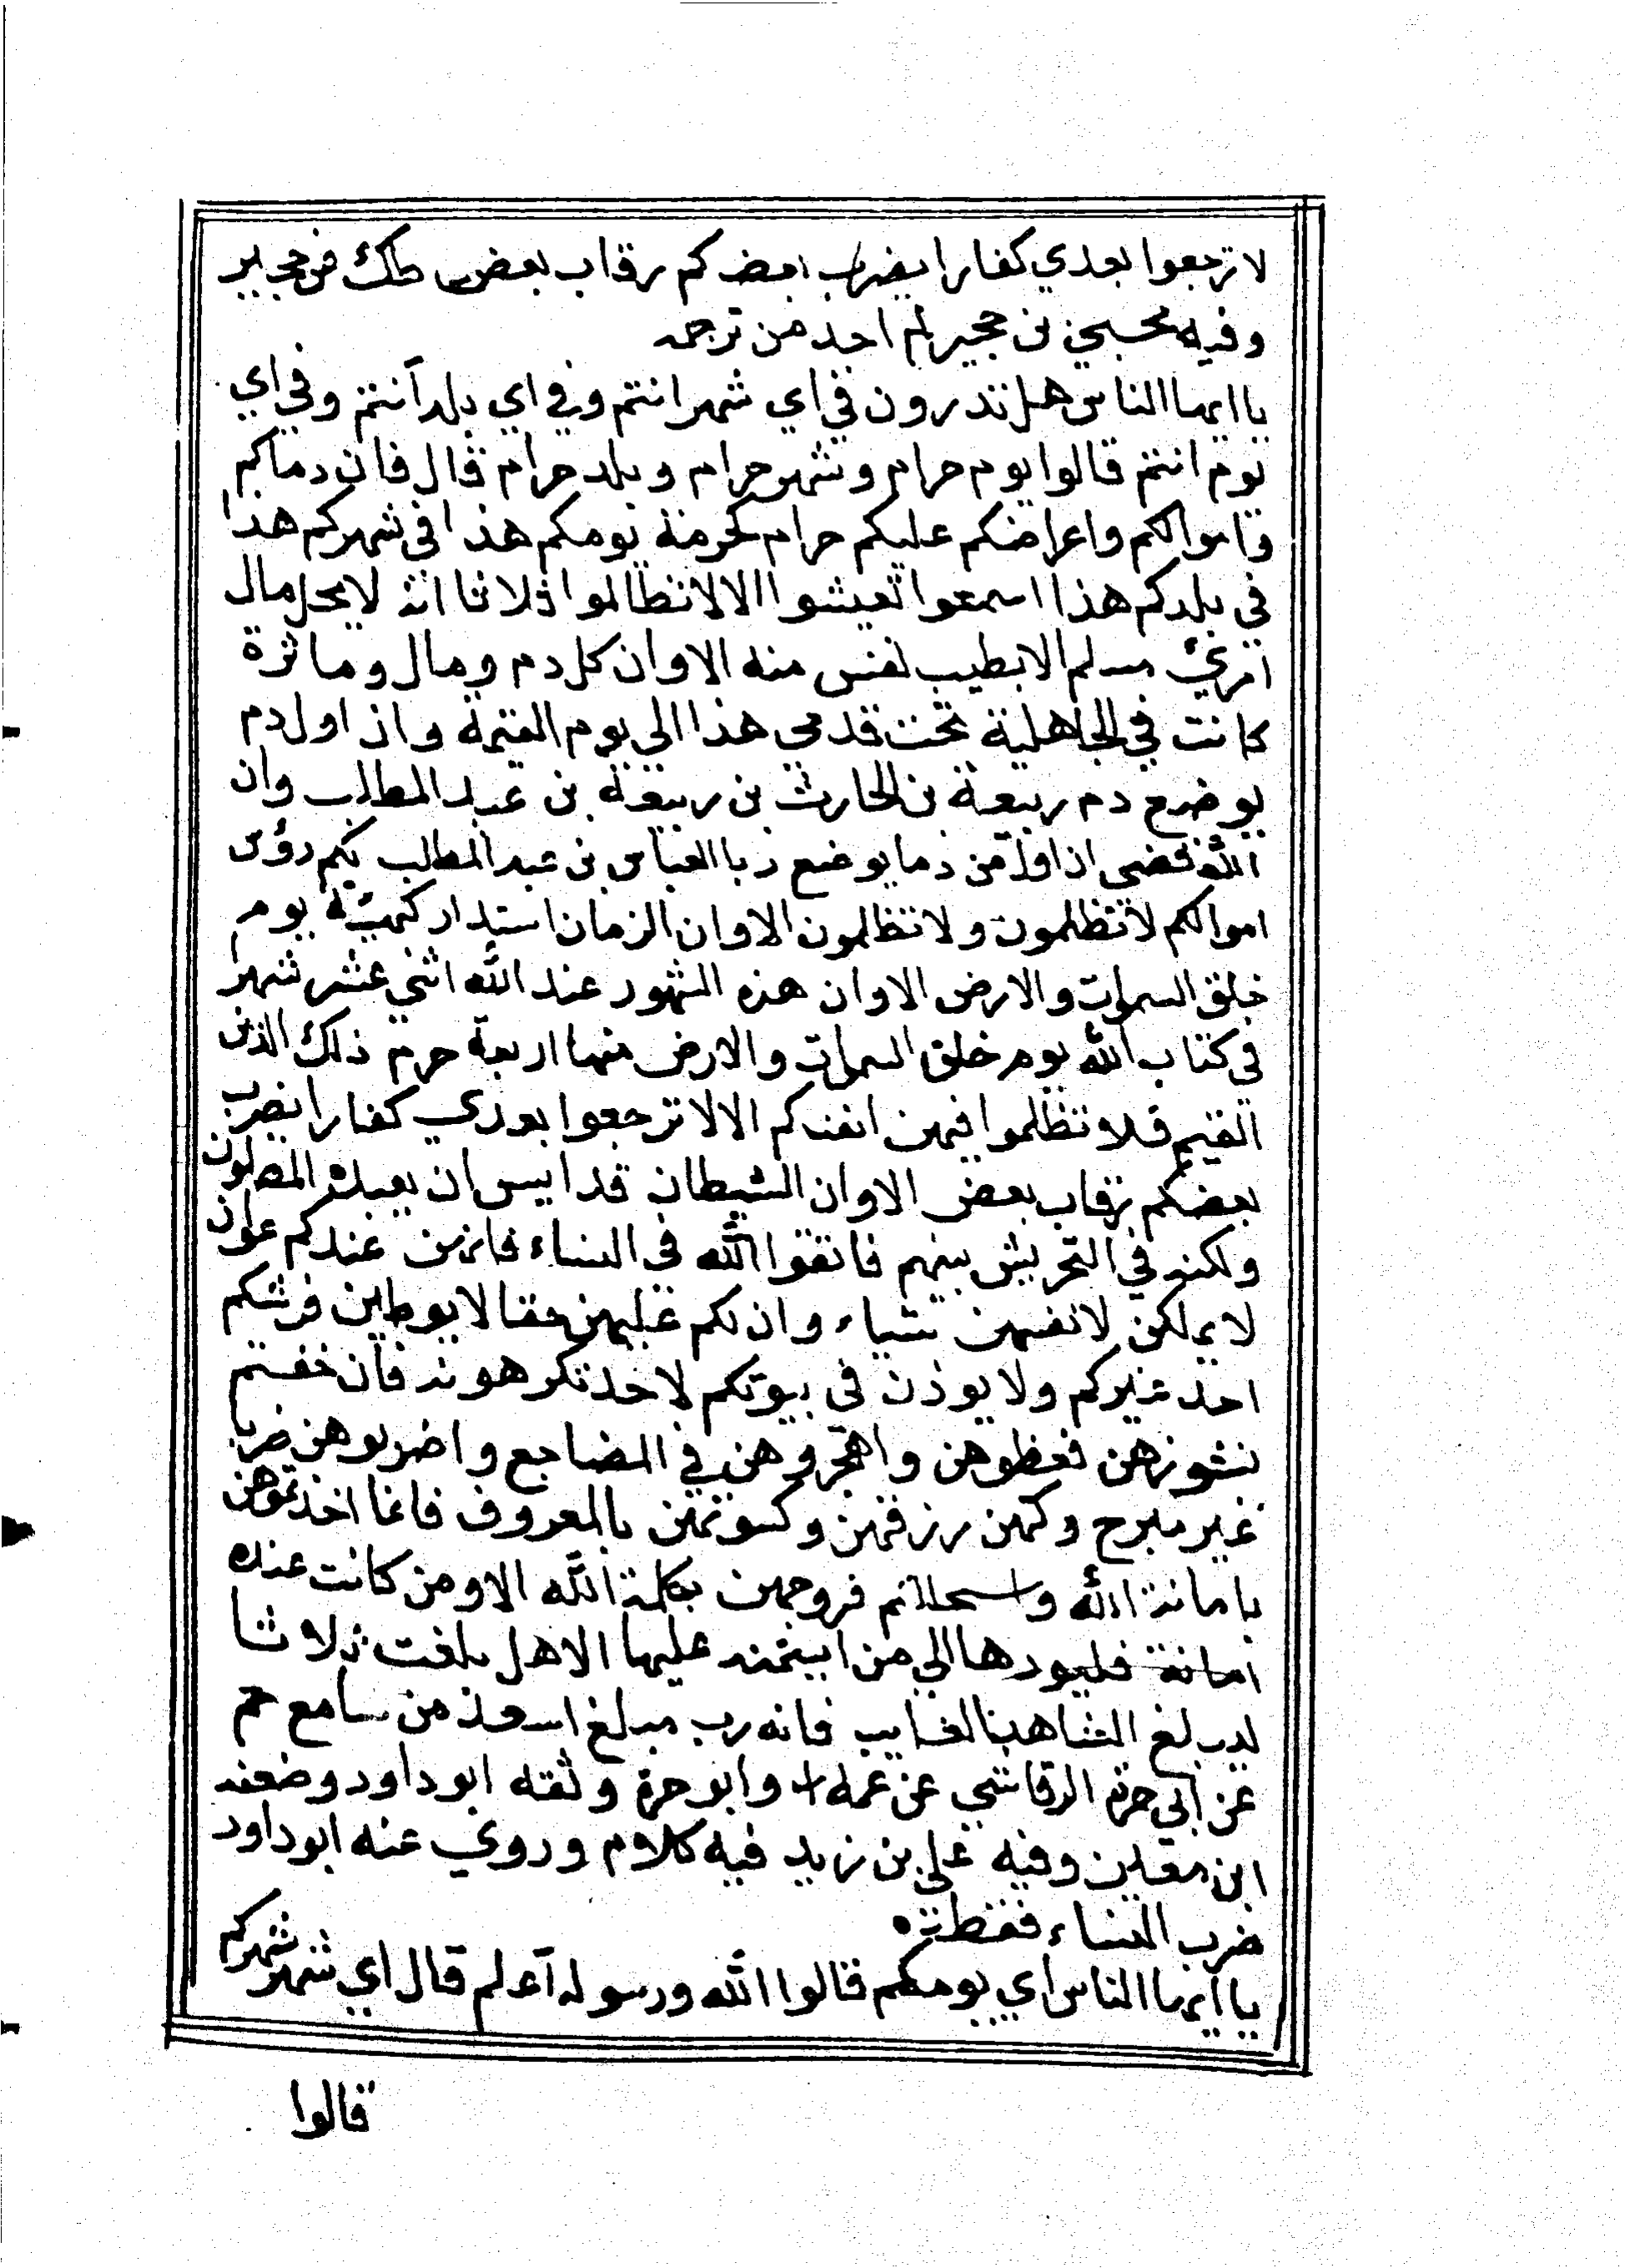 لا ترجعوا بعدي كفارا يضرب بعضكم رقاب بعض طك عن حجير
وفيه مخشي بن حجير لم اجد من ترجمه
يا ايها الناس هل تدرون في اي شهر انتم وفي اي بلد انتم وفي اي
يوم انتم قالوا يوم حرام وشهر حرام وبلد حرام قال فان دماكم
واموالكم واعراضكم عليكم حرام كحرمة يومكم هذا في شهركم هذا
في بلدكم هذا اسمعوا تعيشوا الا لا تظالموا ثلاثا انه لا يحل مال
امرئ مسلم الا بطيب نفس منه الا وان كل دم ومال وماثرة
كانت في الجاهلية تحت قدمي هذا الي يوم القيمة وان اول دم
يوضع دم ربيعة بن الحارث بن ربيعة بن عبد المطلب وان
الله قضي ان اول من دما يوضع ربا العباس بن عبد المطلب لكم رؤس
اموالكم لا تظلمون ولا تظلمون الا وان الزمان استدار كهيئة يوم
خلق السموات والارض الا وان هذه الشهور عند الله اثني عشر شهرا
في كتاب الله يوم خلق السموات والارض منها اربعة حرم ذلك الدين
القيم فلا تظلموا فيهن انفسكم الا لا ترجعوا بعدي كفارا يضرب
بعضكم رقاب بعض الا وان الشيطان قد ايس ان يعبده المصلون
ولكنه في التحريش بينهم فاتقوا الله في النساء فانهن عندكم عوان
لا يملكن لانفسهن شياء وان لكم عليهن حقا لا يوطين فرشكم
احد غيركم ولا يوذن في بيوتكم لاحد تكرهونه فان خفتم
نشوزهن فعظوهن واهجروهن في المضاجع واضربوهن ضربا
غير مبرح ولهن رزقهن وكسوتهن بالمعروف فانما اخذتموهن
بامانة الله واستحللتم فروجهن بكلمة الله الا ومن كانت عنده
امانة فليودها الي من ايتمنه عليها الا هل بلغت ثلاثا
ليبلغ الشاهد الغايب فانه رب مبلغ اسعد من سامع حم
عن ابي حرة الرقاشي عن عمه وابو حرة وثقه ابو داود وضعفه
ابن معين وفيه علي بن زيد فيه كلام وروي عنه ابو داود
ضرب النساء فقط
يا ايها الناس اي يومكم قالوا الله ورسوله اعلم قال اي شهر شهركم
قالوا